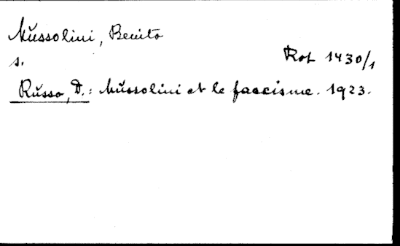 Mussolini, Benito
s. Rot 1430/1
Russo, D.: Mussolini et le fascisme. 1923.